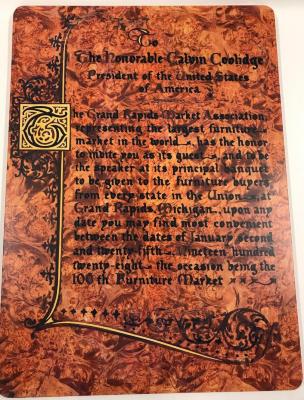 To
The Honorable Calvin Coolidge
President of the United States
of America
The Grand Rapids Market Association,
representing the largest furniture
market in the world, has the honor
to invite you as its guest, and to be
the speaker at its principal banquet
to be given to the furniture buyers
from every state in the Union, at
Grand Rapids, Michigan, upon any
date you may find most convenient
between the dates of January second
and twenty-fifth, Nineteen hundred
twenty-eight, the occasion being the
100th Furniture Market